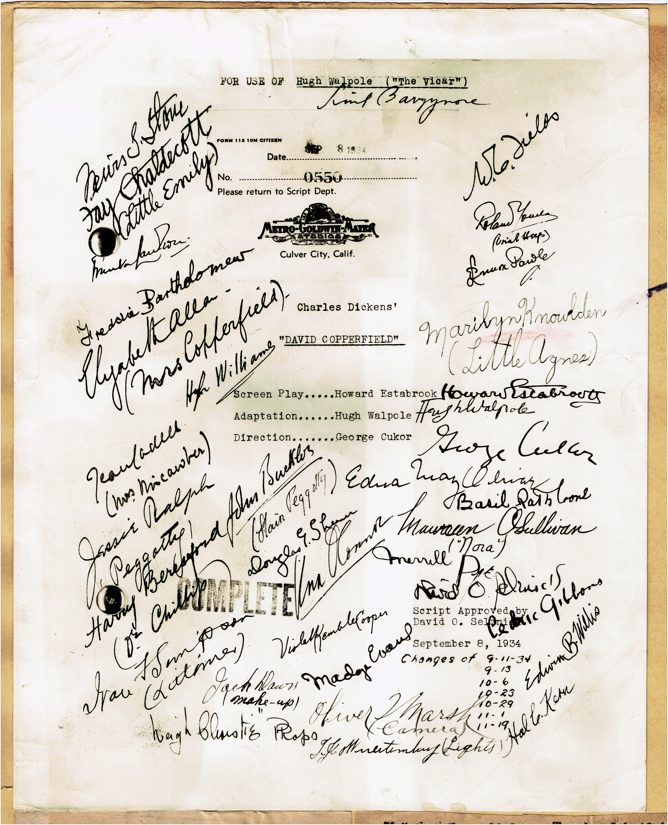 FOR USE OF Hugh Walpole ("The Vicar")
Lionel Barrymore
Lewis S. Stone
Fay Chaldecott
(Little Emily)
FORM 112 10M CITIZEN
Date SEP 8 1934
No. 0550
Please return to Script Dept.
METRO-GOLDWYN-MAYER
STUDIOS
Culver City, Calif.
W. C. Fields
Roland Young
(Uriah Heep)
Lennox Pawle
Frank Lawton
Freddie Bartholomew
Elizabeth Allan
(Mrs Copperfield)
Hugh Williams
Charles Dickens'
"DAVID COPPERFIELD"
Marilyn Knowlden
(Little Agnes)
Screen Play.....Howard Estabrook Howard Estabrook
Adaptation......Hugh Walpole Hugh Walpole
Direction.......George Cukor
George Cukor
Jean Cadell
(Mrs Micawber)
Jessie Ralph
Peggotty
John Buckler
(Ham Peggotty)
Edna May Oliver
Basil Rathbone
Maureen O'Sullivan
("Dora")
Harry Beresford
(Dr Chillip)
Douglas G. Shearer
Una O'Connor
Merrill Pye
David O Selznick
COMPLETE
Script Approved by
David O. Selznick
Cedric Gibbons
September 8, 1934
Changes of 9-11-34
9-13
10-6
10-23
10-29
11-1
11-19
Edwin B. Willis
Hal C. Kern
Ivan F Simpson
(Latimer)
Violet Kemble Cooper
Madge Evans
Jack Dawn
(make-up)
Oliver T Marsh
(Camera)
Leigh Christie Props
(Lights)